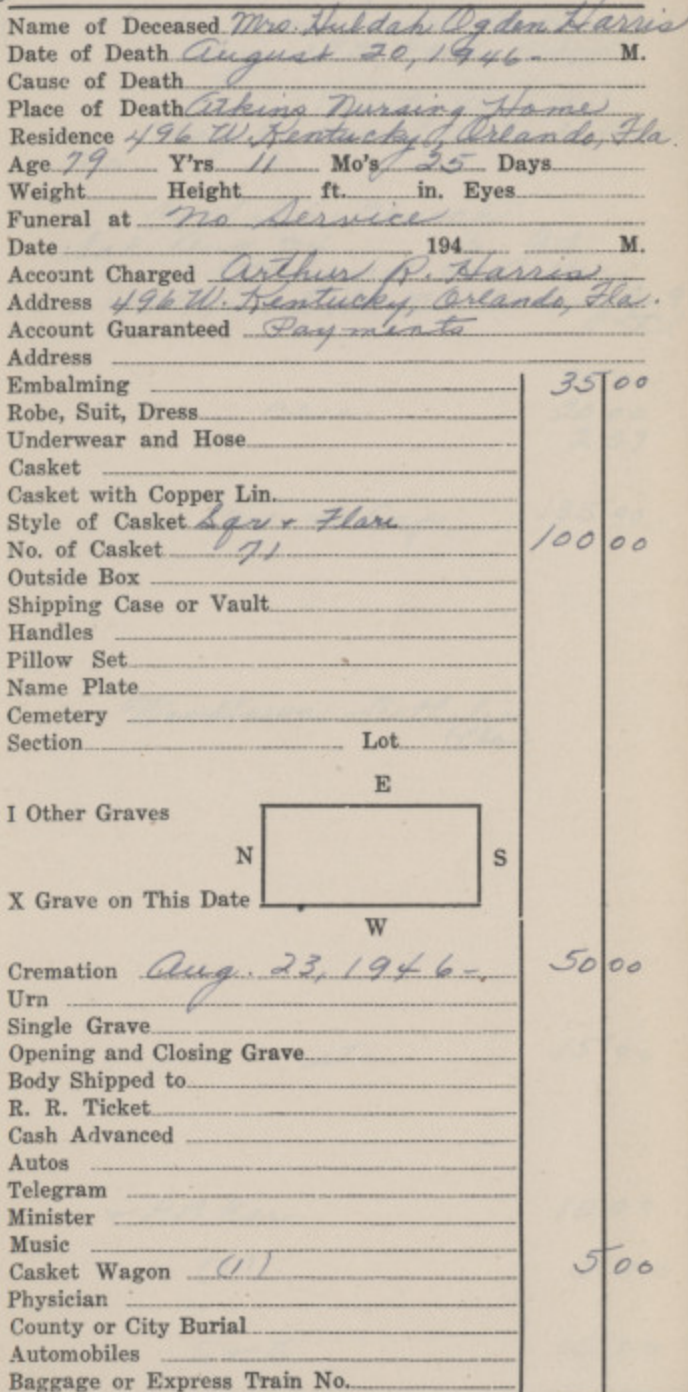 Name of Deceased Mrs. Huldah Ogden Harris
Date of Death August 20, 1946- M.
Cause of Death
Place of Death Atkins Nursing Home
Residence 496 W. Kentucky, Orlando, Fla.
Age 79 Y'rs 11 Mo's 25 Days
Weight Height ft. in. Eyes
Funeral at No Service
Date 194 M.
Account Charged Arthur R. Harris
Address 496 W. Kentucky, Orlando, Fla.
Account Guaranteed Payments
Address
Embalming 35 00
Robe, Suit, Dress
Underwear and Hose
Casket
Casket with Copper Lin.
Style of Casket Sqr + Flare
No. of Casket 71 100 00
Outside Box
Shipping Case or Vault
Handles
Pillow Set
Name Plate
Cemetery
Section Lot
E
I Other Graves
N S
X Grave on This Date
W
Cremation Aug. 23, 1946-. 50 00
Urn
Single Grave
Opening and Closing Grave
Body Shipped to
R. R. Ticket
Cash Advanced
Autos
Telegram
Minister
Music
Casket Wagon (1) 5 00
Physician
County or City Burial
Automobiles
Baggage or Express Train No.